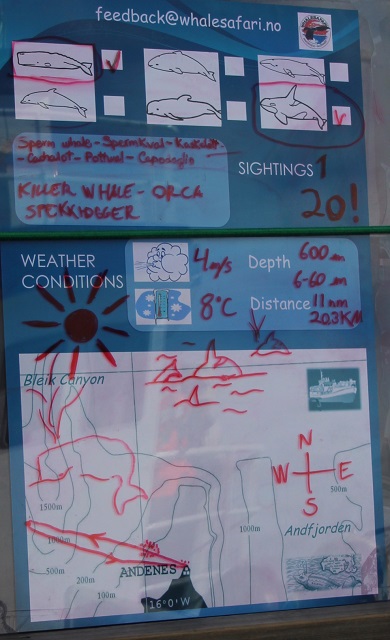 feedback@whalesafari.no
Sperm whale-Spermkval-Kaskelott
-Cachalot-Pottwal-Capodoglio
KILLER WHALE- ORCA
SPEKKHOGGER
SIGHTINGS 1
20!
WEATHER
CONDITIONS
4m/s
8°C
Depth 600 m
6-60 m
Distance 11 nm
20,3 KM
Bleik Canyon
N
W E
S
1500m
1000m
500m
200m
100m
1000m
500m
Andfjorden
ANDENES
16°0'W